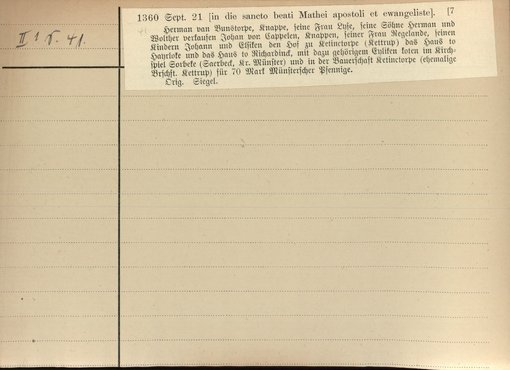 II¹ V. 41
1360 Sept. 21 [in die sancto beati Mathei apostoli et ewangeliste]. [7
Herman van Bunstorpe, Knappe, seine Frau Lyse, seine Söhne Herman und
Wolther verkaufen Johan von Cappelen, Knappen, seiner Frau Regelande, seinen
Kindern Johann und Elsiken den Hof zu Ketinctorpe (Kettrup) das Haus to
Hayrloke und das Haus to Richardinck, mit dazu gehörigem Eylsken koten im Kirch-
spiel Sorbeke (Saerbeck, Kr. Münster) und in der Bauerschaft Ketinctorpe (ehemalige
Brschft. Kettrup) für 70 Mark Münsterscher Pfennige.
Orig. Siegel.